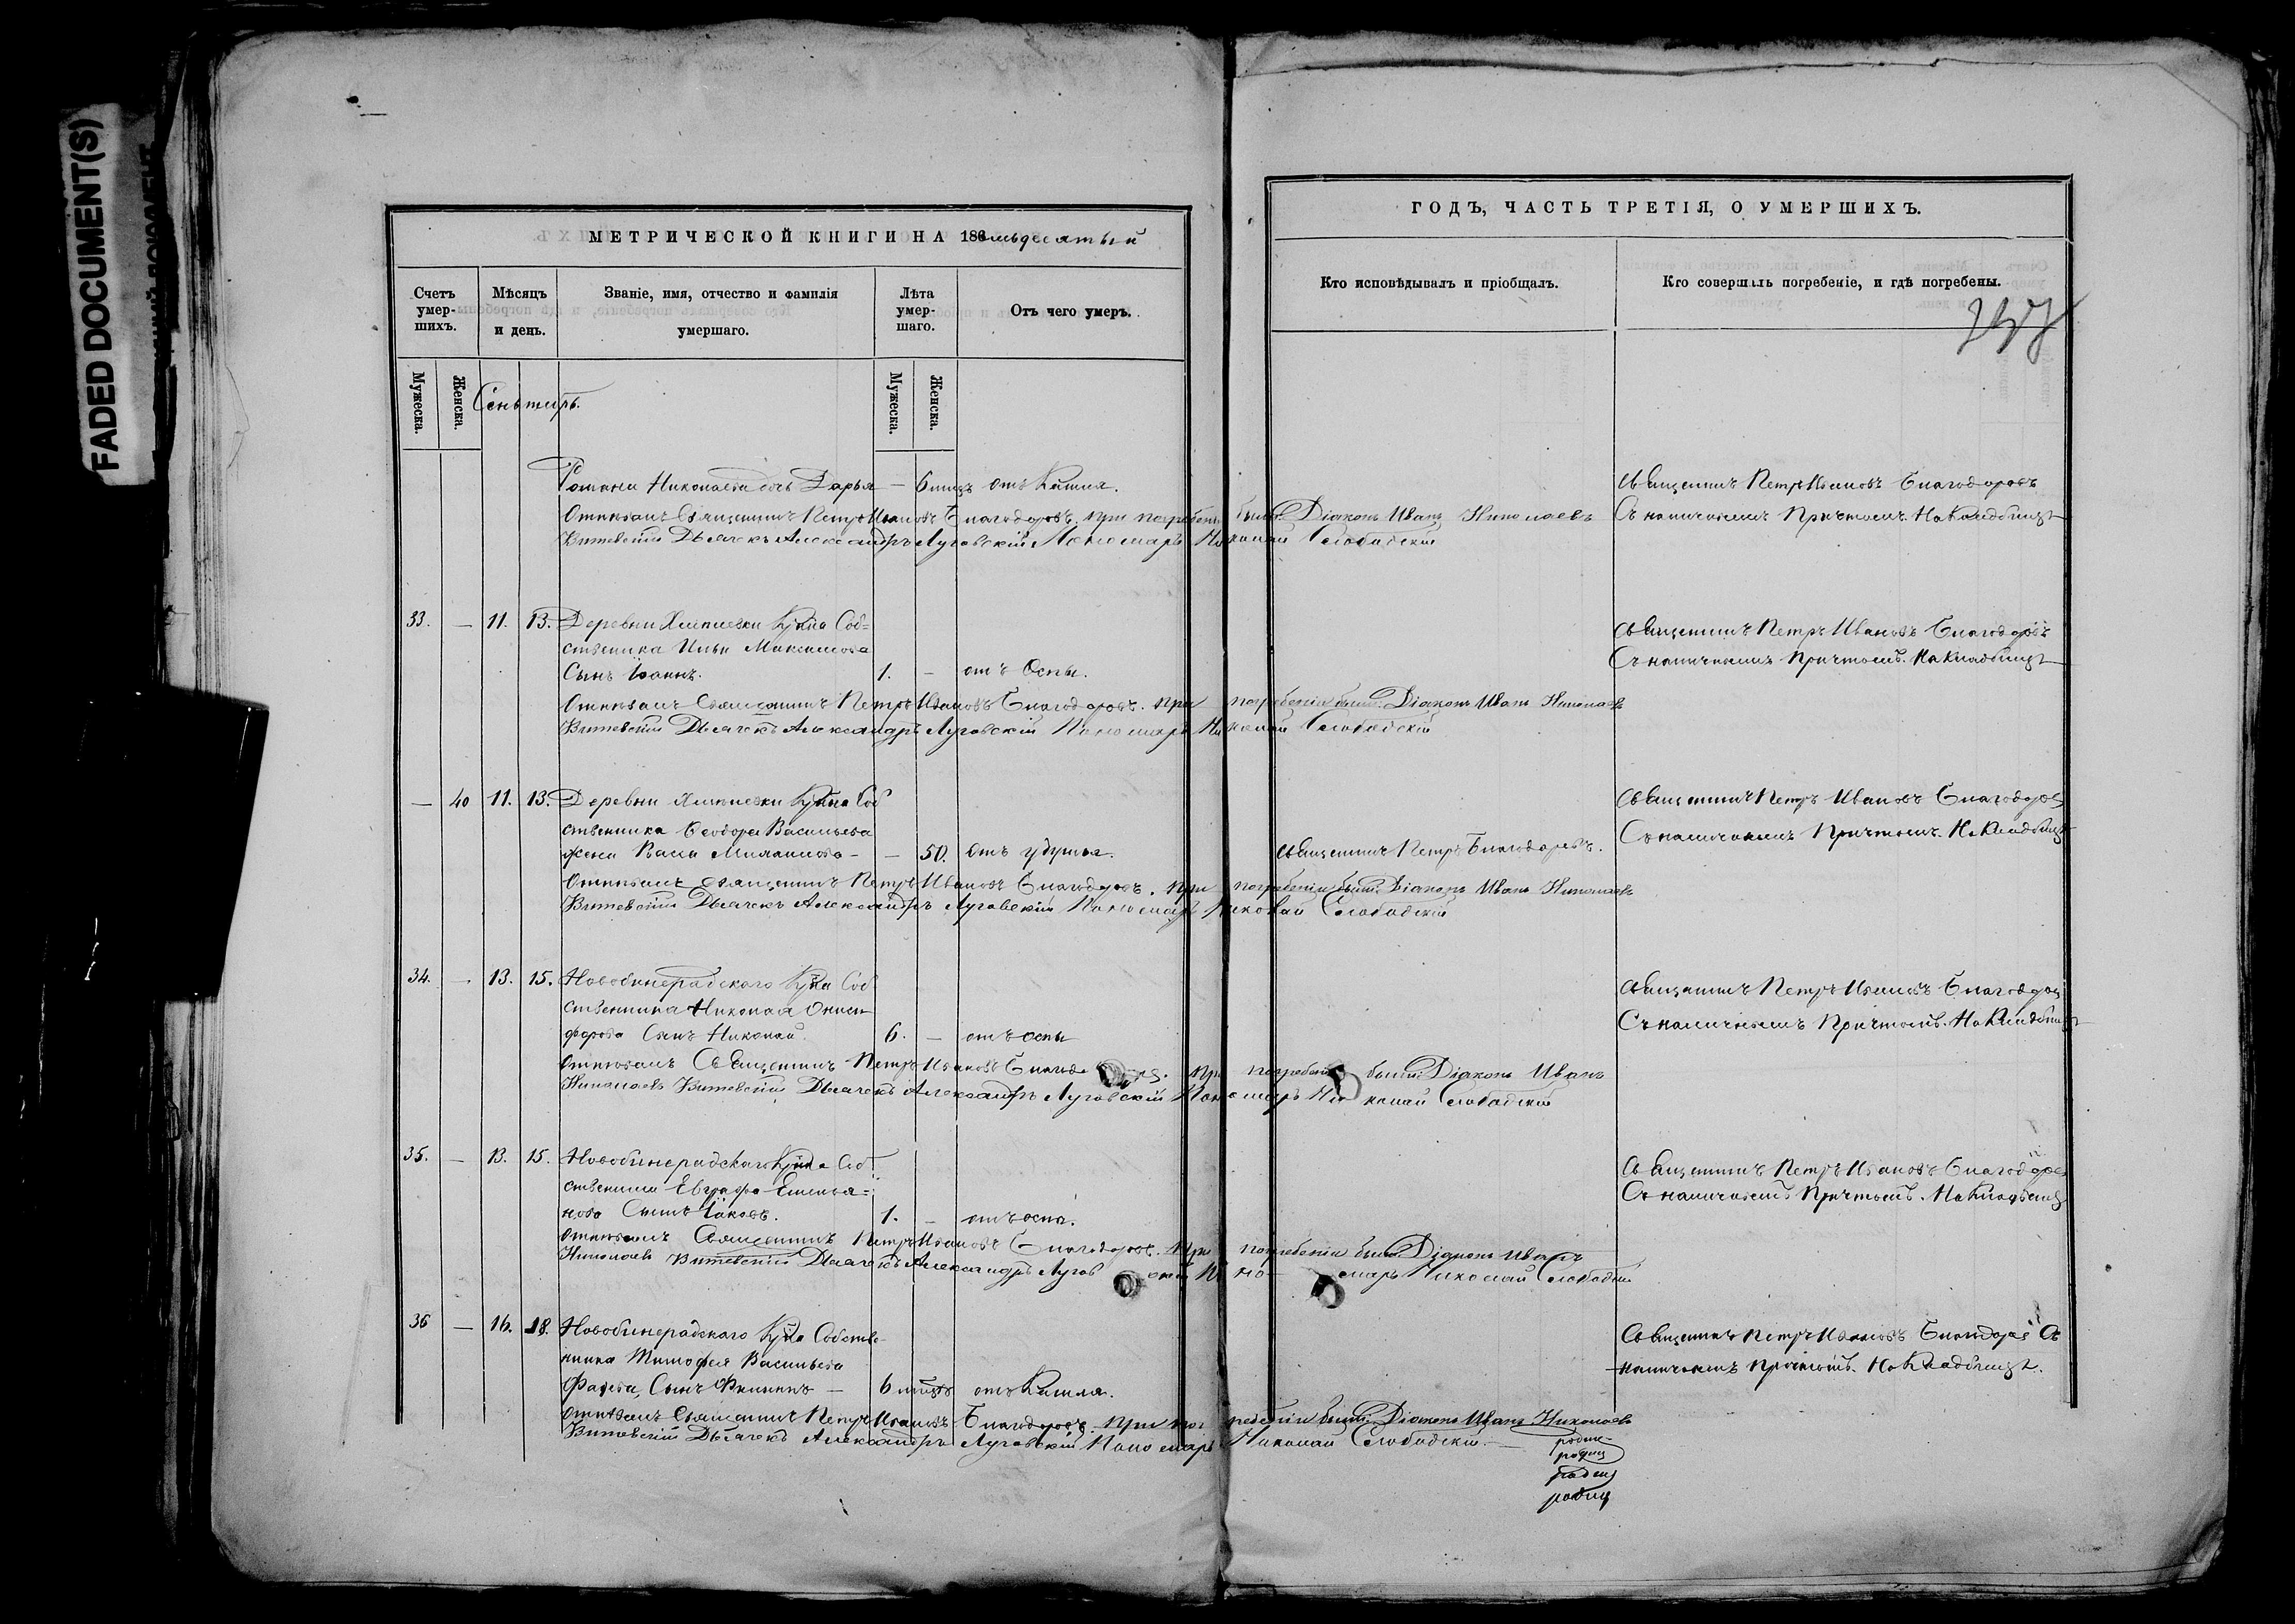 FADED DOCUMENT(S)
МЕТРИЧЕСКОЙ КНИГИ НА 186
Счетъ умерших. Мѣсяцъ и день. Званіе, имя, отчество и фамилія умершаго. Лѣта умершаго. Отъ чего умеръ.
Мужеска. Женска. Мужеска. Женска.
Сентябрь.
Николаева дочь Дарья — 6 мцъ отъ Кашля.
Отпѣвалъ Священникъ Петръ Ивановъ Благодаровъ. при погребеніи были: Діаконъ Иванъ Николаевъ
Витевскій Дьячекъ Александръ Луговскій Пономарь Николай Слободскій
33. — 11. 13. Деревни Кр-на Соб=
ственника Ильи Максимова
Сынъ Іоаннъ. 1. — отъ Оспы.
Отпѣвалъ Священникъ Петръ Ивановъ Благодаровъ. при погребеніи были: Діаконъ Иванъ Николаевъ
Витевскій Дьячекъ Александръ Луговскій Пономарь Николай Слободскій
— 40 11. 13. Деревни Кр-на Соб
ственника Ѳеодора Васильева
жена — — 50. Отъ удушья.
Отпѣвалъ Священникъ Петръ Ивановъ Благодаровъ. при погребеніи были: Діаконъ Иванъ Николаевъ
Витевскій Дьячекъ Александръ Луговскій Пономарь Николай Слободскій
34. — 13. 15. Новобинерадскаго Кр-на Соб
ственника Николая Ониси
форова Сынъ Николай. 6. — отъ оспы
Отпѣвалъ Священникъ Петръ Ивановъ при были: Діаконъ Иванъ
Николаевъ Витевскій Дьячекъ Александръ Луговскій Пономарь Николай Слободскій
35. — 13. 15. Новобинерадскаго Кр-на Соб
ственника Евграфа Емелья=
нова Сынъ Іаковъ. 1. — отъ оспы.
Отпѣвалъ Священникъ Петръ Ивановъ Благодаровъ. При погребеніи были: Діаконъ Иванъ
Николаевъ Витевскій Дьячекъ Александръ Николай
36 — 16. 18. Новобинерадскаго Кр-на Собстве-
нника Тимофея Васильева
Сынъ Филиппъ — 6 мцъ отъ Кашля.
Отпѣвалъ Священникъ Петръ Ивановъ Благодаровъ. при погребеніи были: Діаконъ Иванъ Николаевъ
Витевскій Дьячекъ Александръ Луговскій Пономарь Николай Слободскій
ГОДЪ, ЧАСТЬ ТРЕТІЯ, О УМЕРШИХЪ.
Кто исповѣдывалъ и пріобщалъ. Кто совершалъ погребеніе, и гдѣ погребены.
Священникъ Петръ Ивановъ Благодаровъ
Съ наличнымъ Причтомъ. На Кладбищѣ
Священникъ Петръ Ивановъ Благодаровъ
Съ наличнымъ Причтомъ. На Кладбищѣ
Священникъ Петръ Ивановъ Благодаровъ
Съ наличнымъ Причтомъ. На Кладбищѣ
Священникъ Петръ Благодаровъ.
Священникъ Петръ Ивановъ Благодаровъ
Съ наличнымъ Причтомъ. На Кладбищѣ
Священникъ Петръ Ивановъ Благодаровъ
Съ наличнымъ Причтомъ. На Кладбищѣ
Священникъ Петръ Ивановъ Благодаровъ Съ
наличнымъ Причтомъ. На Кладбищѣ.